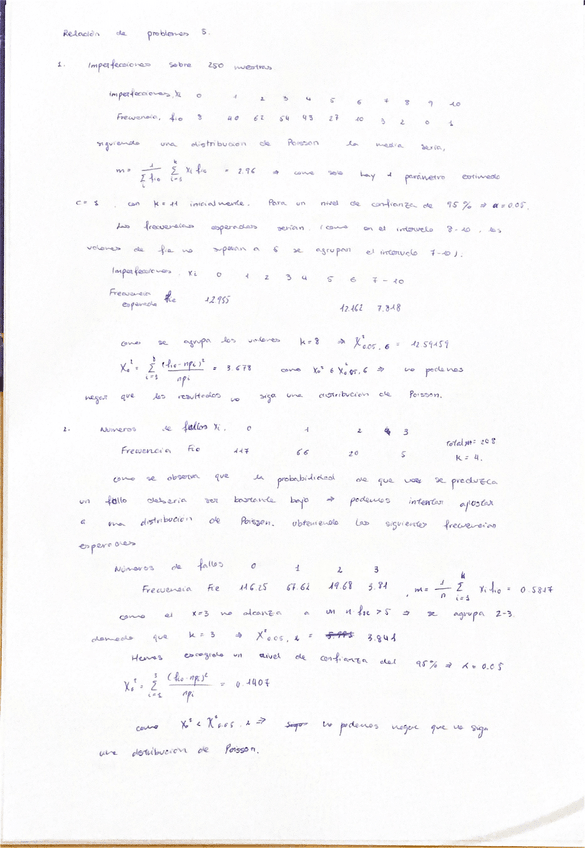 Relación de problemas 5.
1. Imperfecciones sobre 250 muestras
Imperfecciones, xi 0 1 2 3 4 5 6 7 8 9 10
Frecuencia, fio 8 40 62 54 43 27 10 3 2 0 1
siguiendo una distribución de Poisson la media sería,
m = 1/Σ fio Σ xi fio = 2.96 ⇒ como solo hay 1 parámetro estimado
c = 1, con k = 11 inicialmente. Para un nivel de confianza de 95% ⇒ α = 0.05.
Las frecuencias esperadas serían (como en el intervalo 8-10, los
valores de fie no superan a 5 se agrupan el intervalo 7-10).
Imperfecciones, xi 0 1 2 3 4 5 6 7-10
Frecuencia
esperada fie 12.955 12.162 7.818
como se agrupa los valores k=8 ⇒ X²0.05, 6 = 12.59159
X0² = Σ (fio-npi)²/npi = 3.678 como X0² < X²0.05, 6 ⇒ no podemos
negar que los resultados no siga una distribución de Poisson.
2. Números de fallos xi. 0 1 2 3
Frecuencia Fio 117 66 20 5 Total n = 208
k = 4.
como se observa que la probabilidad de que se produzca
un fallo debería ser bastante bajo ⇒ podemos intentar ajustar
a una distribución de Poisson, obteniendo las siguientes frecuencias
esperadas
Números de fallos 0 1 2 3
Frecuencia Fie 116.25 67.62 19.68 3.81 , m = 1/n Σ xi fio = 0.5817
como el x=3 no alcanza a un > 5 ⇒ se agrupa 2-3.
dando que k = 3 ⇒ X²0.05, = 3.841
Hemos escogido un nivel de confianza del 95% ⇒ α = 0.05
X0² = Σ (fio-npi)²/npi = 0.1407
como X0² < X²0.05, ⇒ no podemos negar que no siga
una distribución de Poisson.